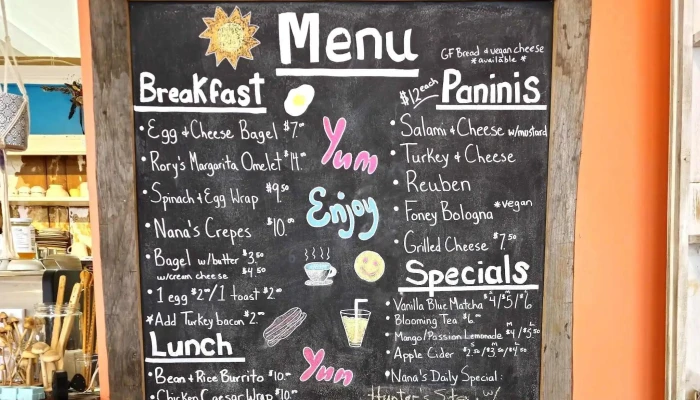 Menu
GF Bread & vegan cheese
*available*
Breakfast
• Egg & Cheese Bagel $7.00
• Rory's Margarita Omelet $14.00
• Spinach & Egg Wrap $9.50
• Nana's Crepes $10.00
• Bagel w/butter $3.50
w/cream cheese $4.50
• 1 egg $2.00/1 toast $2.00
*Add Turkey bacon $2.00
Lunch
• Bean & Rice Burrito $10.00
• Chicken Caesar Wrap $10.00
Yum
Enjoy
Yum
$12 each Paninis
• Salami & Cheese w/mustard
• Turkey & Cheese
• Reuben
• Foney Bologna *vegan
• Grilled Cheese $7.50
Specials
• Vanilla Blue Matcha S $4/M $5/L $6
• Blooming Tea $6.00
• Mango/Passion Lemonade M $4/L $5.50
• Apple Cider S $2.50/M $3.50/L $4.50
• Nana's Daily Special:
Hunter's Stew w/